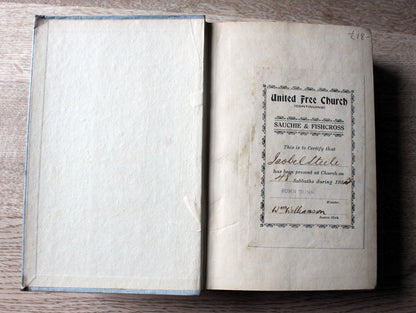 £18-
United Free Church
(CONTINUING)
SAUCHIE & FISHCROSS
This is to Certify that
Isobel Steele
has been present at Church on
48 Sabbaths during
Minister.
Wm Williamson
Session Clerk